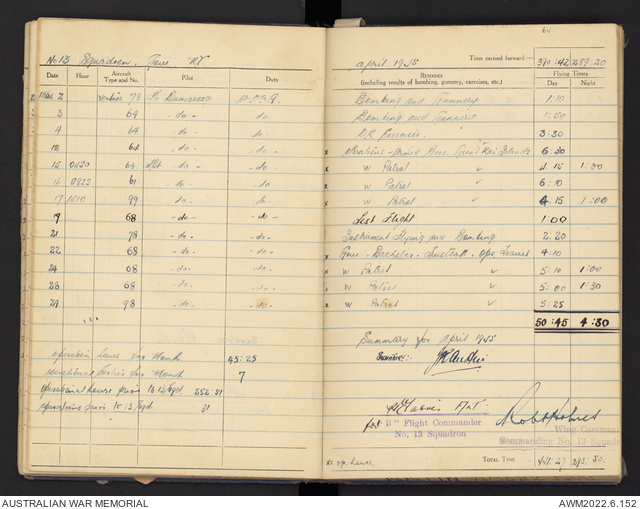 No. 13 Squadron, Gove NT
Date Hour Aircraft Type and No. Pilot Duty
2 Ventura 78 Dumaresq W.O.A.G.
3 69 -do- -do-
4 64 -do- -do-
12 64 -do- -do-
15 0450 64 -do-
16 0825 61 -do- -do-
17 99 -do- -do-
19 68 -do- -do-
21 78 -do- -do-
22 68 -do- -do-
24 68 -do- -do-
28 68 -do- -do-
29 98 -do- -do-
operation hours for Month 45:25
for Month 7
operational hours prev to 13 Sqd 252.51
operations prev to 13 Sqd 31
60
April 1945 Time carried forward:— 390:42 289:20
Remarks
(including results of bombing, gunnery, exercises, etc.)
Flying Times
Day Night
Bombing and Gunnery 1:10
Bombing and Gunnery 1:50
3:30
x Kai Islands 6:30
x W Patrol 4:15 1:00
x W Patrol 6:10
x W Patrol 4:15 1:00
Test Flight 1:00
Instrument Flying and Bombing 2:20
x Gove - Batchelor - 4:10
x W Patrol 5:10 1:00
x W Patrol 5:00 1:30
x W Patrol 5:25
50:45 4:30
Summary for April 1945
Signature:-
F/Lt
for "B" Flight Commander
No. 13 Squadron
Wing Commander
Commanding No. 13 Squadron
x op. hours.
Total Time 441.27 293.50
AUSTRALIAN WAR MEMORIAL
AWM2022.6.152